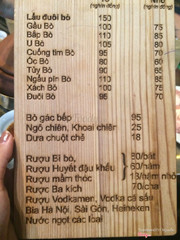 (nghìn đồng) (nghìn đồng)
Lẩu đuôi bò 150
Gầu Bò 100 75
Bắp Bò 110 85
U Bò 105 80
Cuống tim Bò 95 70
Óc Bò 80 60
Tủy Bò 90 65
Ngẩu pín Bò 110 85
Xách Bò 100 75
Đuôi Bò 95 70
Bò gác bếp 95
Ngô chiên, Khoai chiên 25
Dưa chuột chẻ 18
Rượu Bỉ bò, 80/bát
Rượu Huyết đậu khấu
Rượu mầm thóc
Rượu Ba kích
Rượu Vodkamen, Vodka cá sấu
Bia Hà Nội, Sài Gòn, Heineken
Nước ngọt các loại